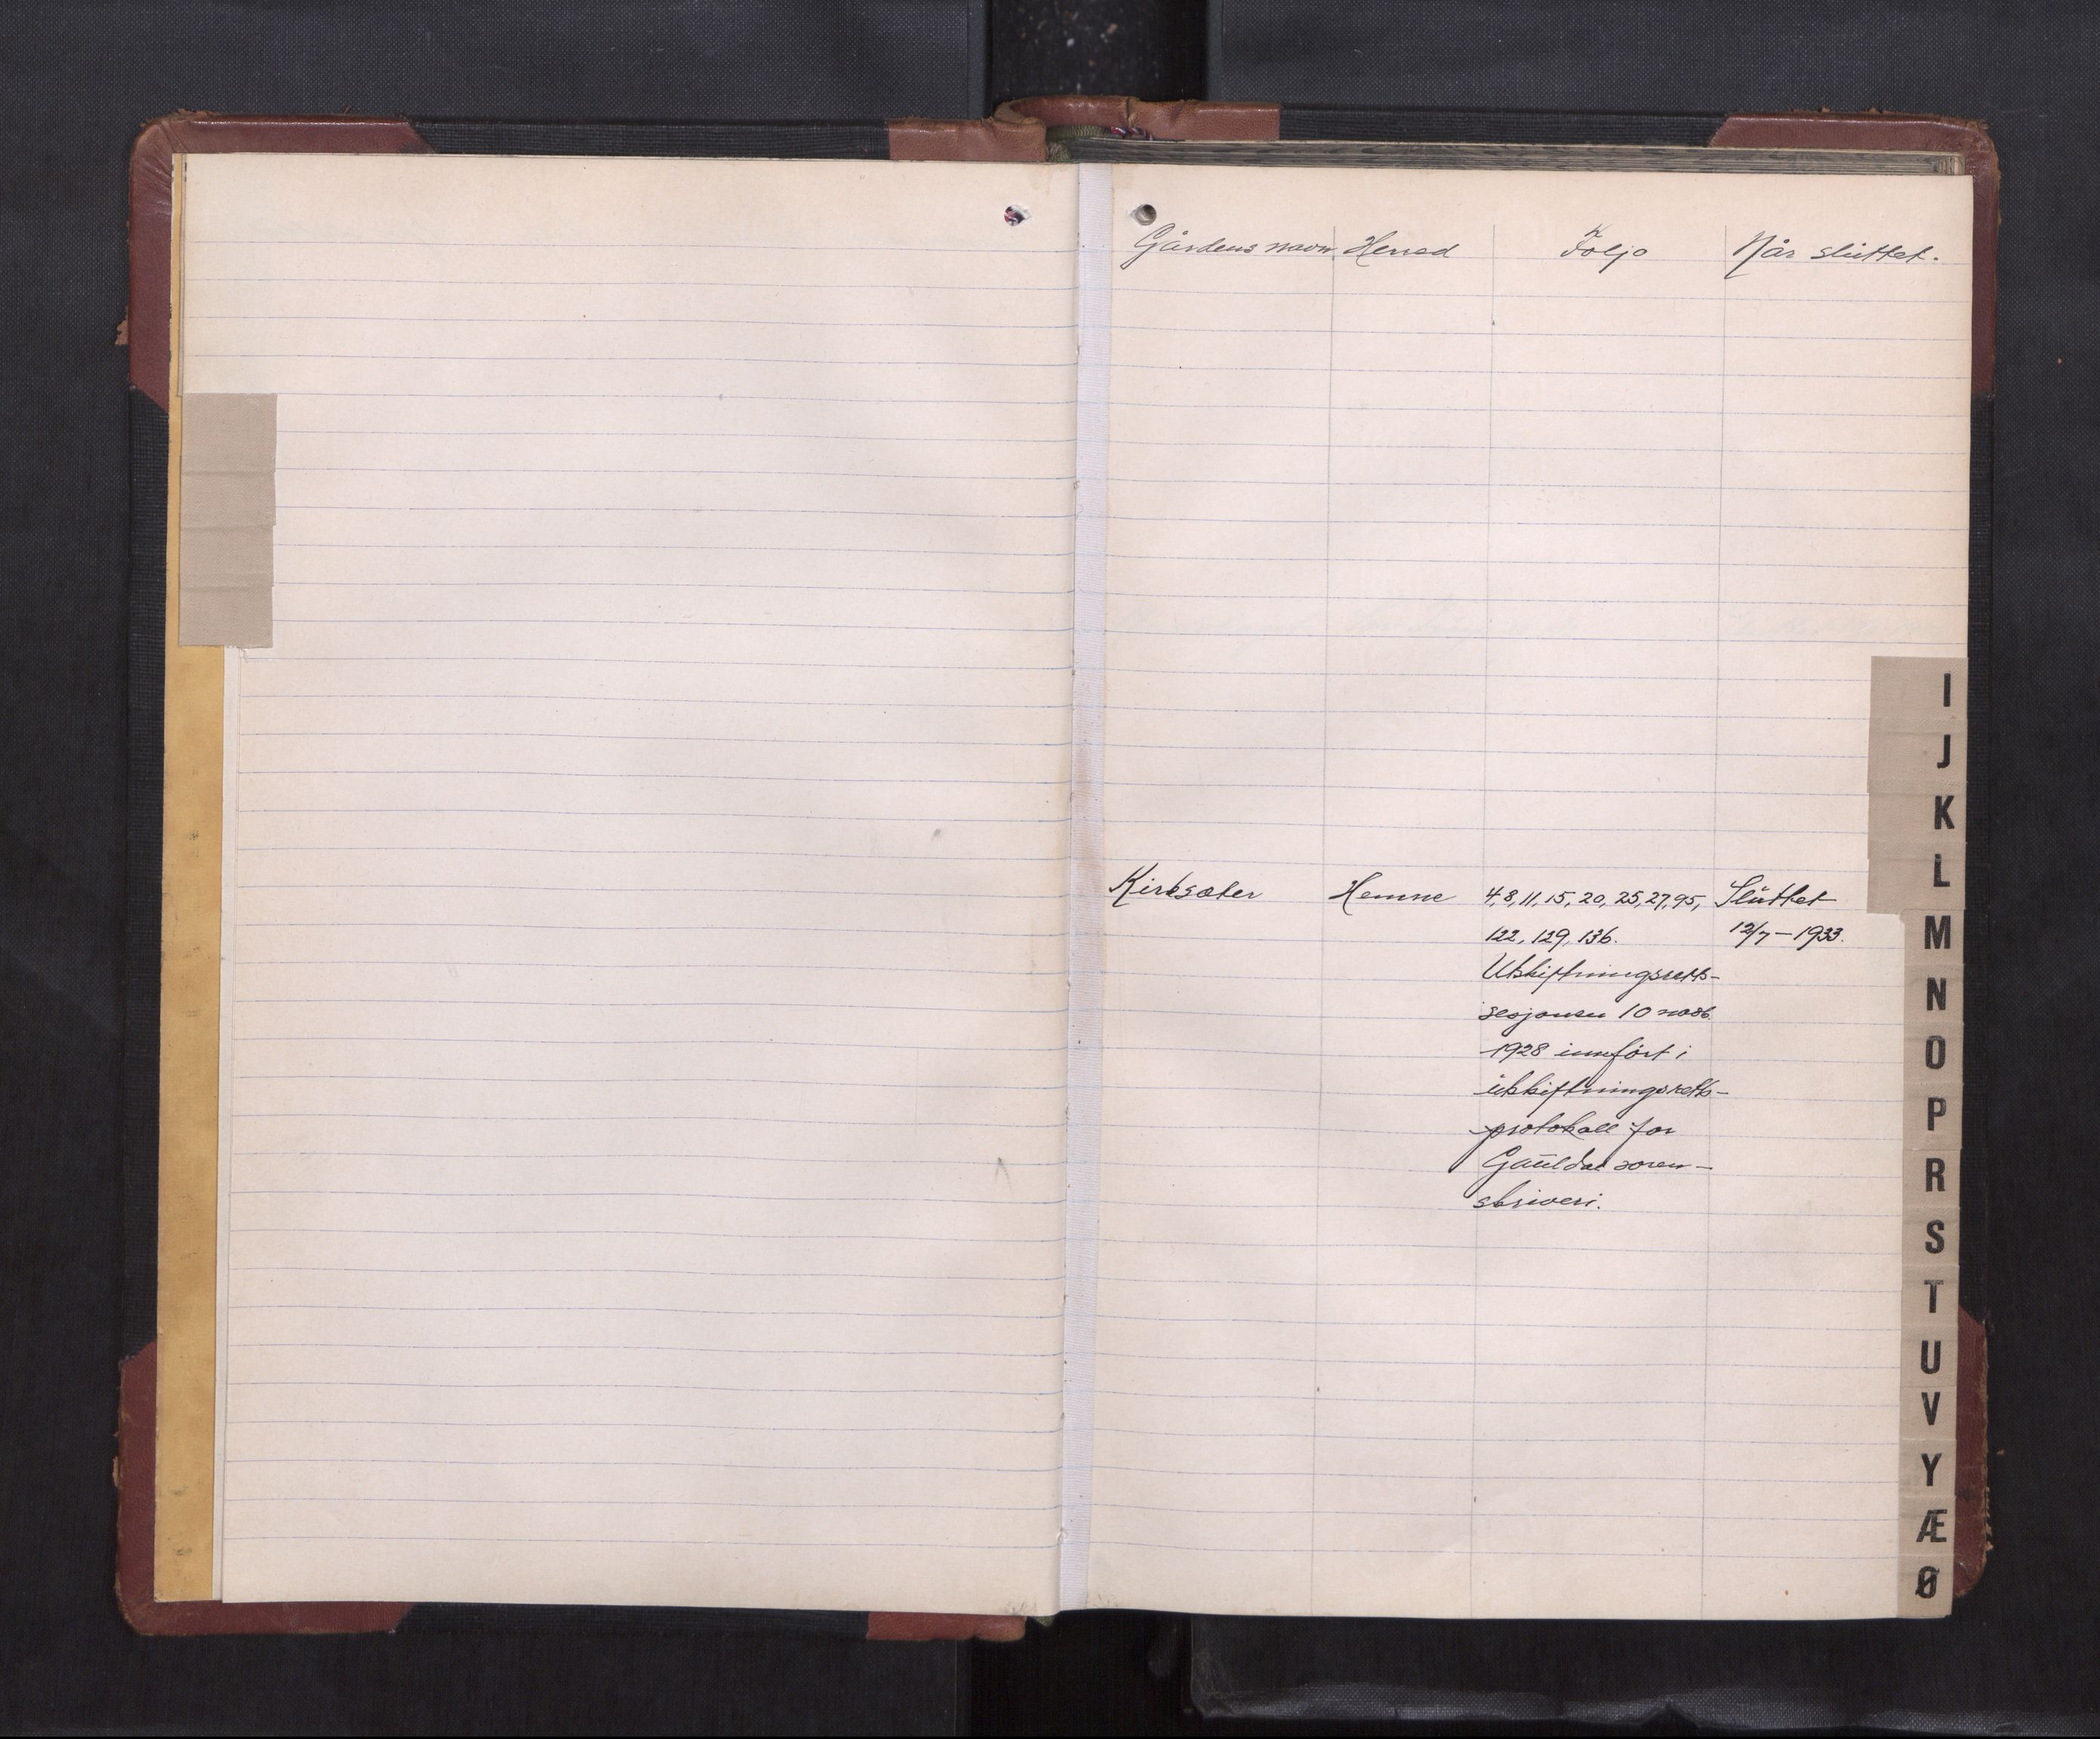 Gårdens navn. Herred Foljo Når sluttet.
Kirksæter Hemne 4, 8, 11, 15, 20, 25, 27, 95, Sluttet
122, 129, 136. 12/7 – 1933.
Utskiftningsretts-
sesjonen 10 novb.
1928 innført i
utskiftningsretts-
protokoll for
Gauldal soren-
skriveri.
I
J
K
L
M
N
O
P
R
S
T
U
V
Y
Æ
Ø